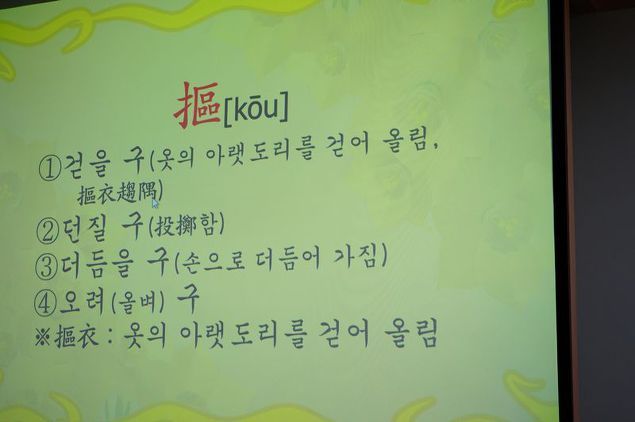 摳[kōu]
①걷을 구(옷의 아랫도리를 걷어 올림,
摳衣趨隅)
②던질 구(投擲함)
③더듬을 구(손으로 더듬어 가짐)
④오려(올벼) 구
※摳衣 : 옷의 아랫도리를 걷어 올림